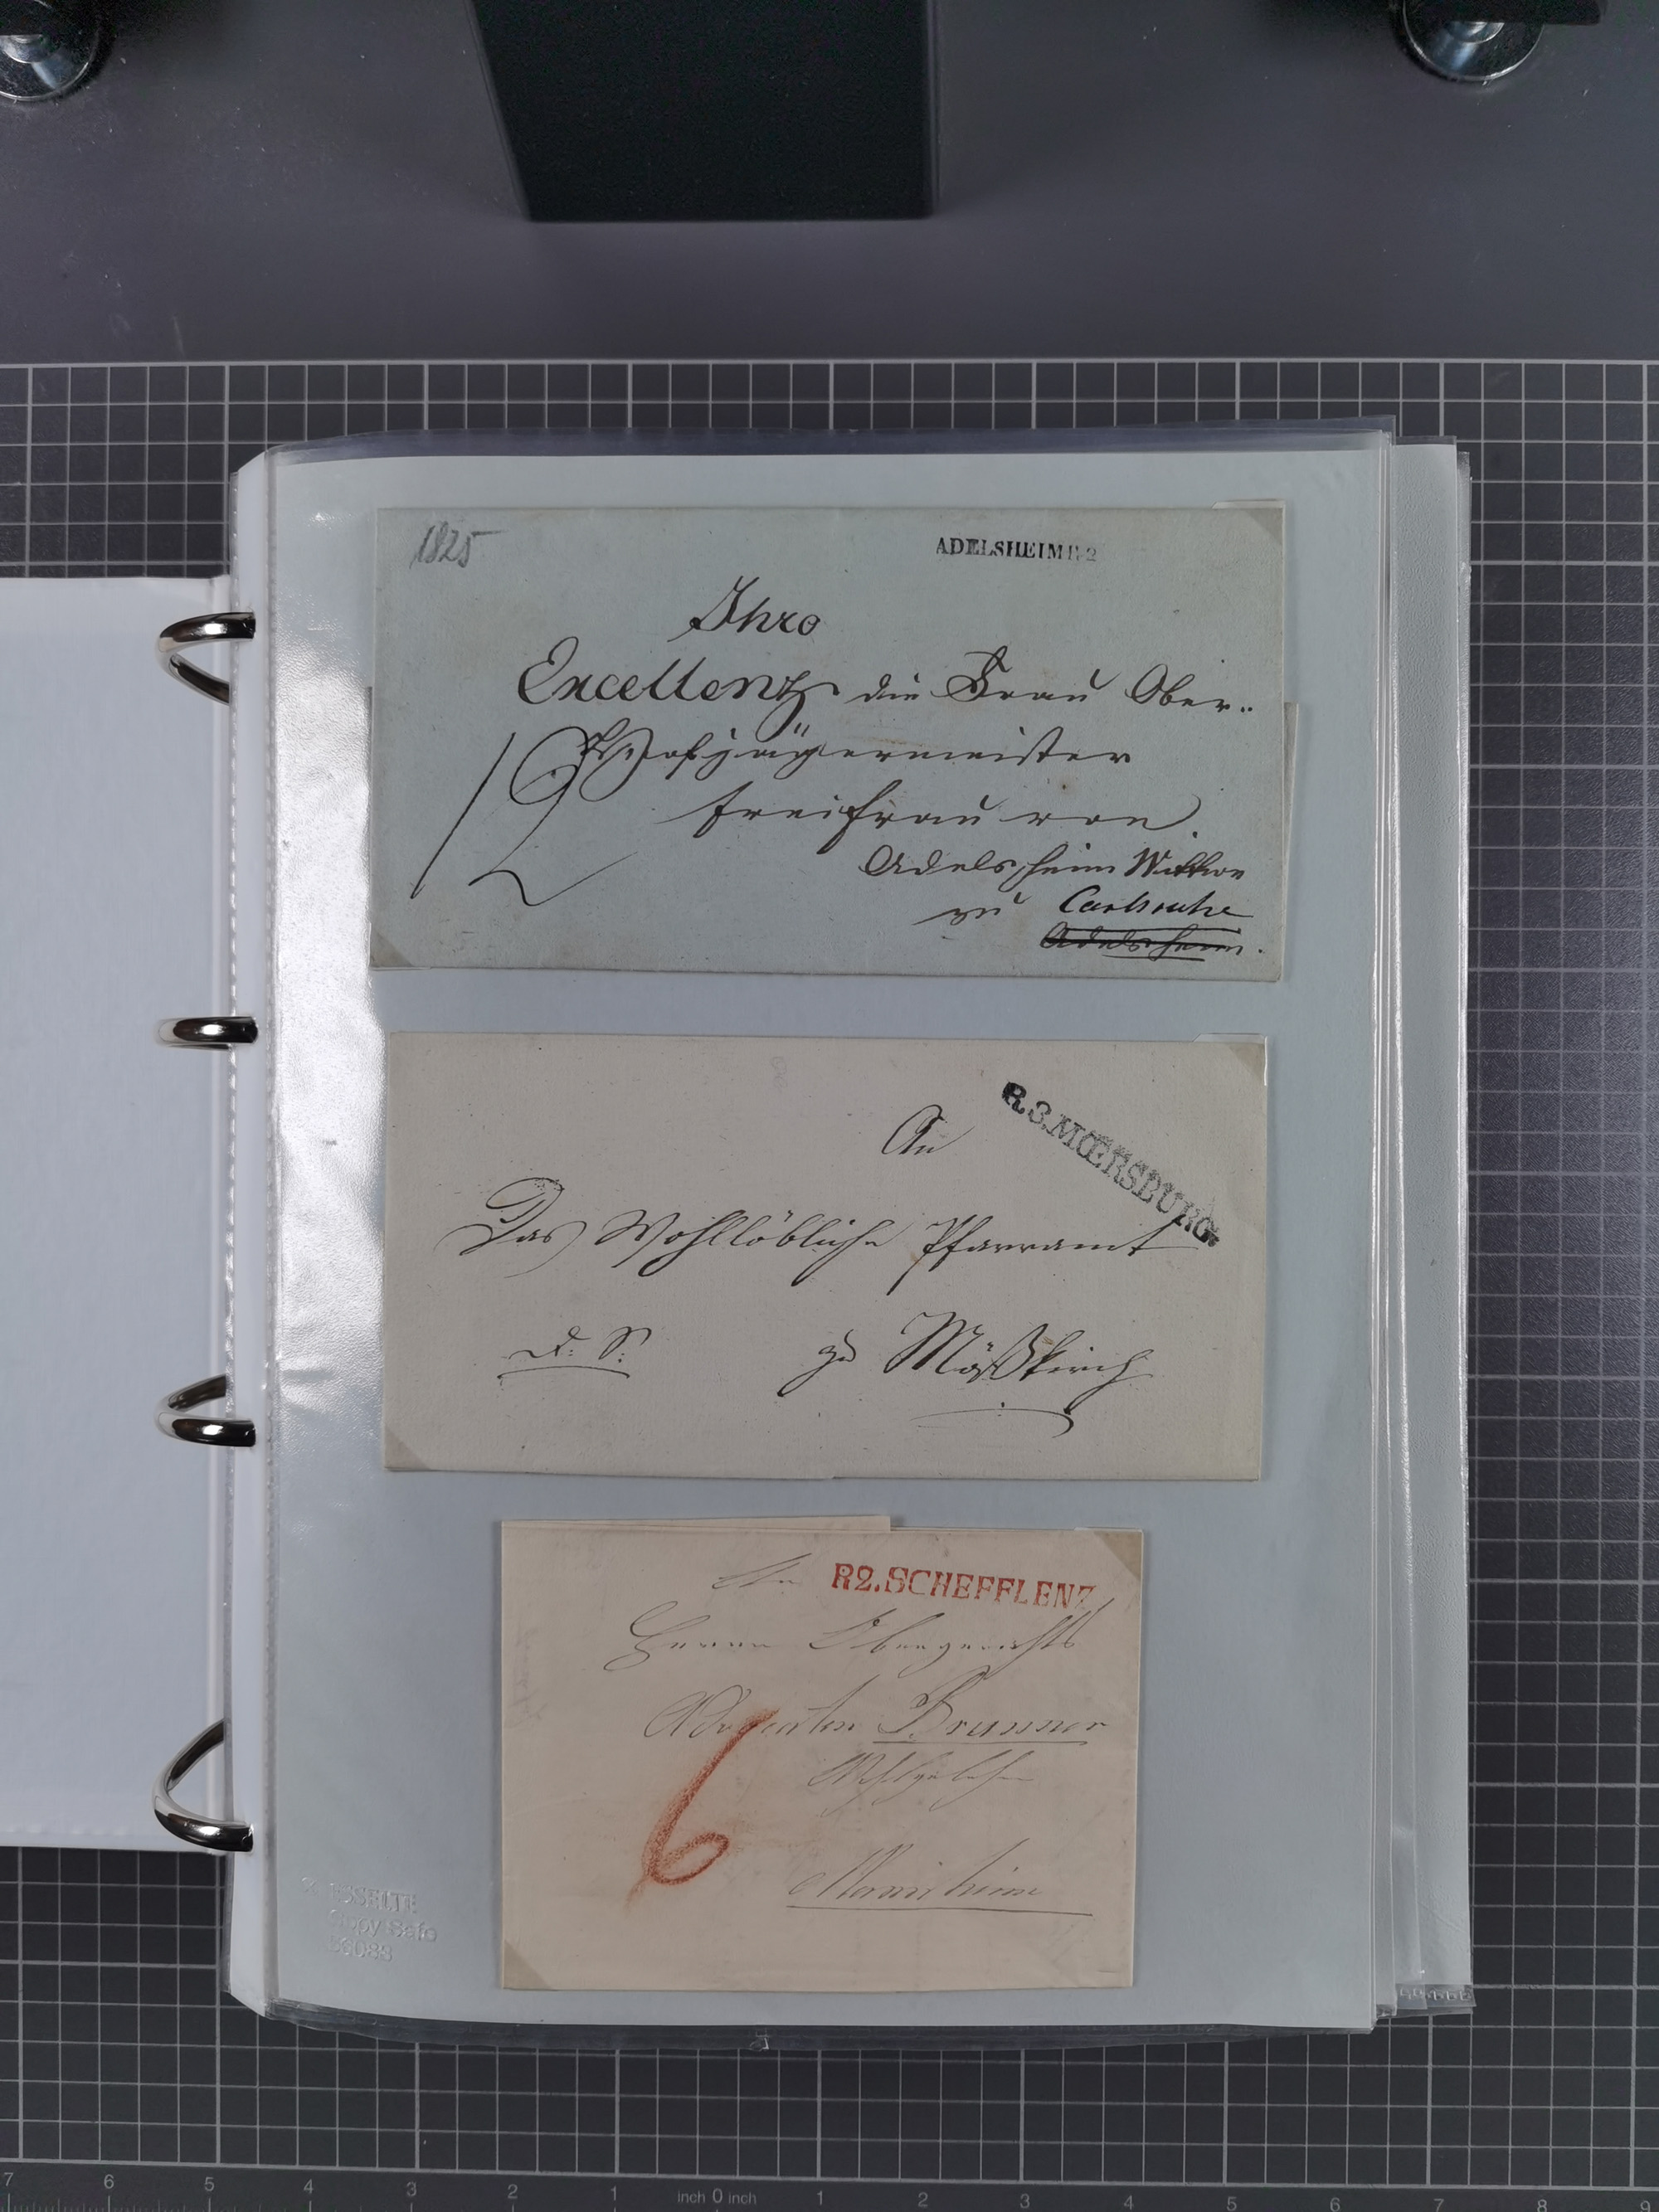 1825
ADELSHEIM R.2
Ihro
Excellentz die Frau Ober-
Hofjägermeister
12
Freifrau von
Adelsheim Wittwe
zu Carlsruhe
Adelsheim.
R.3.MŒRSBURG.
An
Das Wohllöbliche Pfarramt
D. S. zu Mößkirch
An R2.SCHEFFLENZ
Herrn Obergerichts
Advocaten Brunner
6
Mannheim
ESSELTE
Copy Safe
56083
7 6 5 4 3 2 1 inch 0 inch 1 2 3 4 5 6 7 8 9